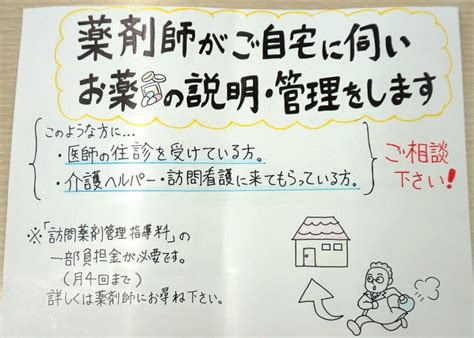 薬剤師がご自宅に伺い
お薬の説明・管理をします
このような方に...
・医師の往診を受けている方。
・介護ヘルパー・訪問看護に来てもらっている方。
ご相談
下さい!
※「訪問薬剤管理指導料」の
一部負担金が必要です。
(月4回まで)
詳しくは薬剤師にお尋ね下さい。